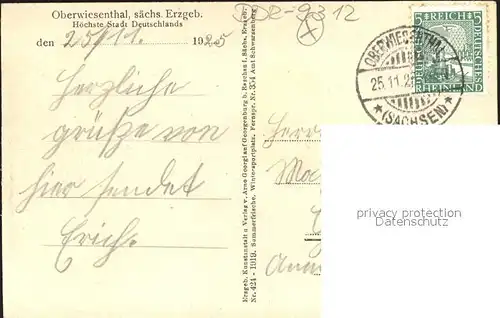 Oberwiesenthal, sächs. Erzgeb.
Höchste Stadt Deutschlands
den 25/11. 1925
Herzliche
grüße von
hier sendet
Erich.
Erzgeb. Kunstanstalt u Verlag v. Arno Georgi auf Georgenburg b. Barchen i. Sächs. Erzgeb.
Nr. 424 - 1919. Sommerfrische. Wintersportplatz. Fernspr. Nr. 354 Amt Schwarzenberg
DSD2-9312
OBERWIESENTHAL
25.11.25
*(SACHSEN)*
5 REICH 5
DEUTSCHES
RHEINLAND
Herr
privacy protection
Datenschutz